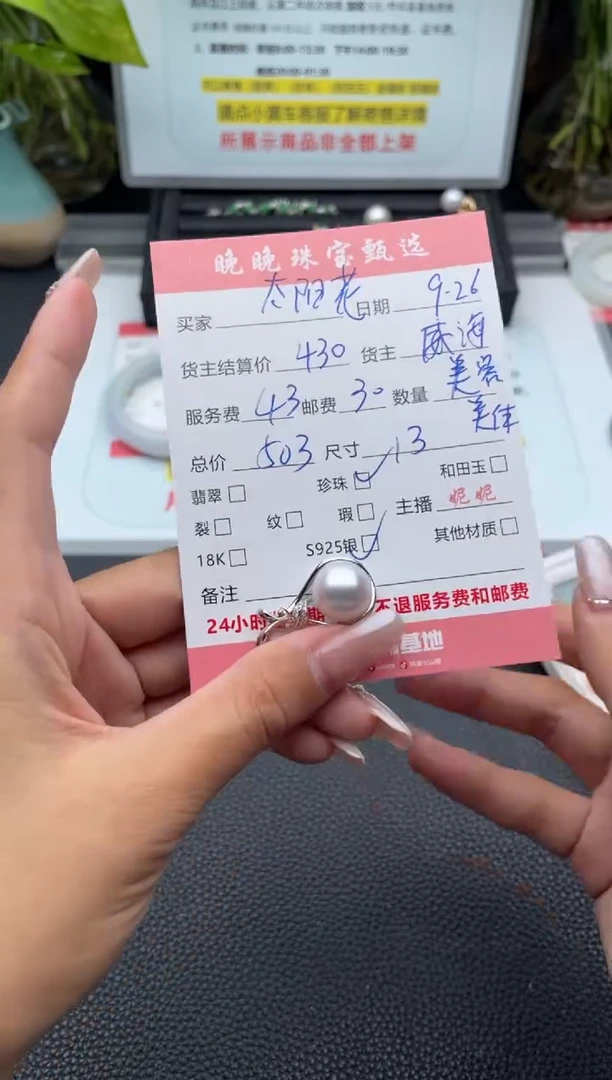 请点小黄车客服了解寄售详情
所展示商品非全部上架
晚晚珠宝甄选
买家 太阳花 日期 9.26
货主结算价 430 货主 威海
服务费 43 邮费 30 数量 美容
美体
总价 503 尺寸 13
翡翠□ 珍珠☑ 和田玉□
裂□ 纹□ 瑕□ 主播 妮妮
18K□ S925银☑ 其他材质□
备注
24小时 期 不退服务费和邮费
基地